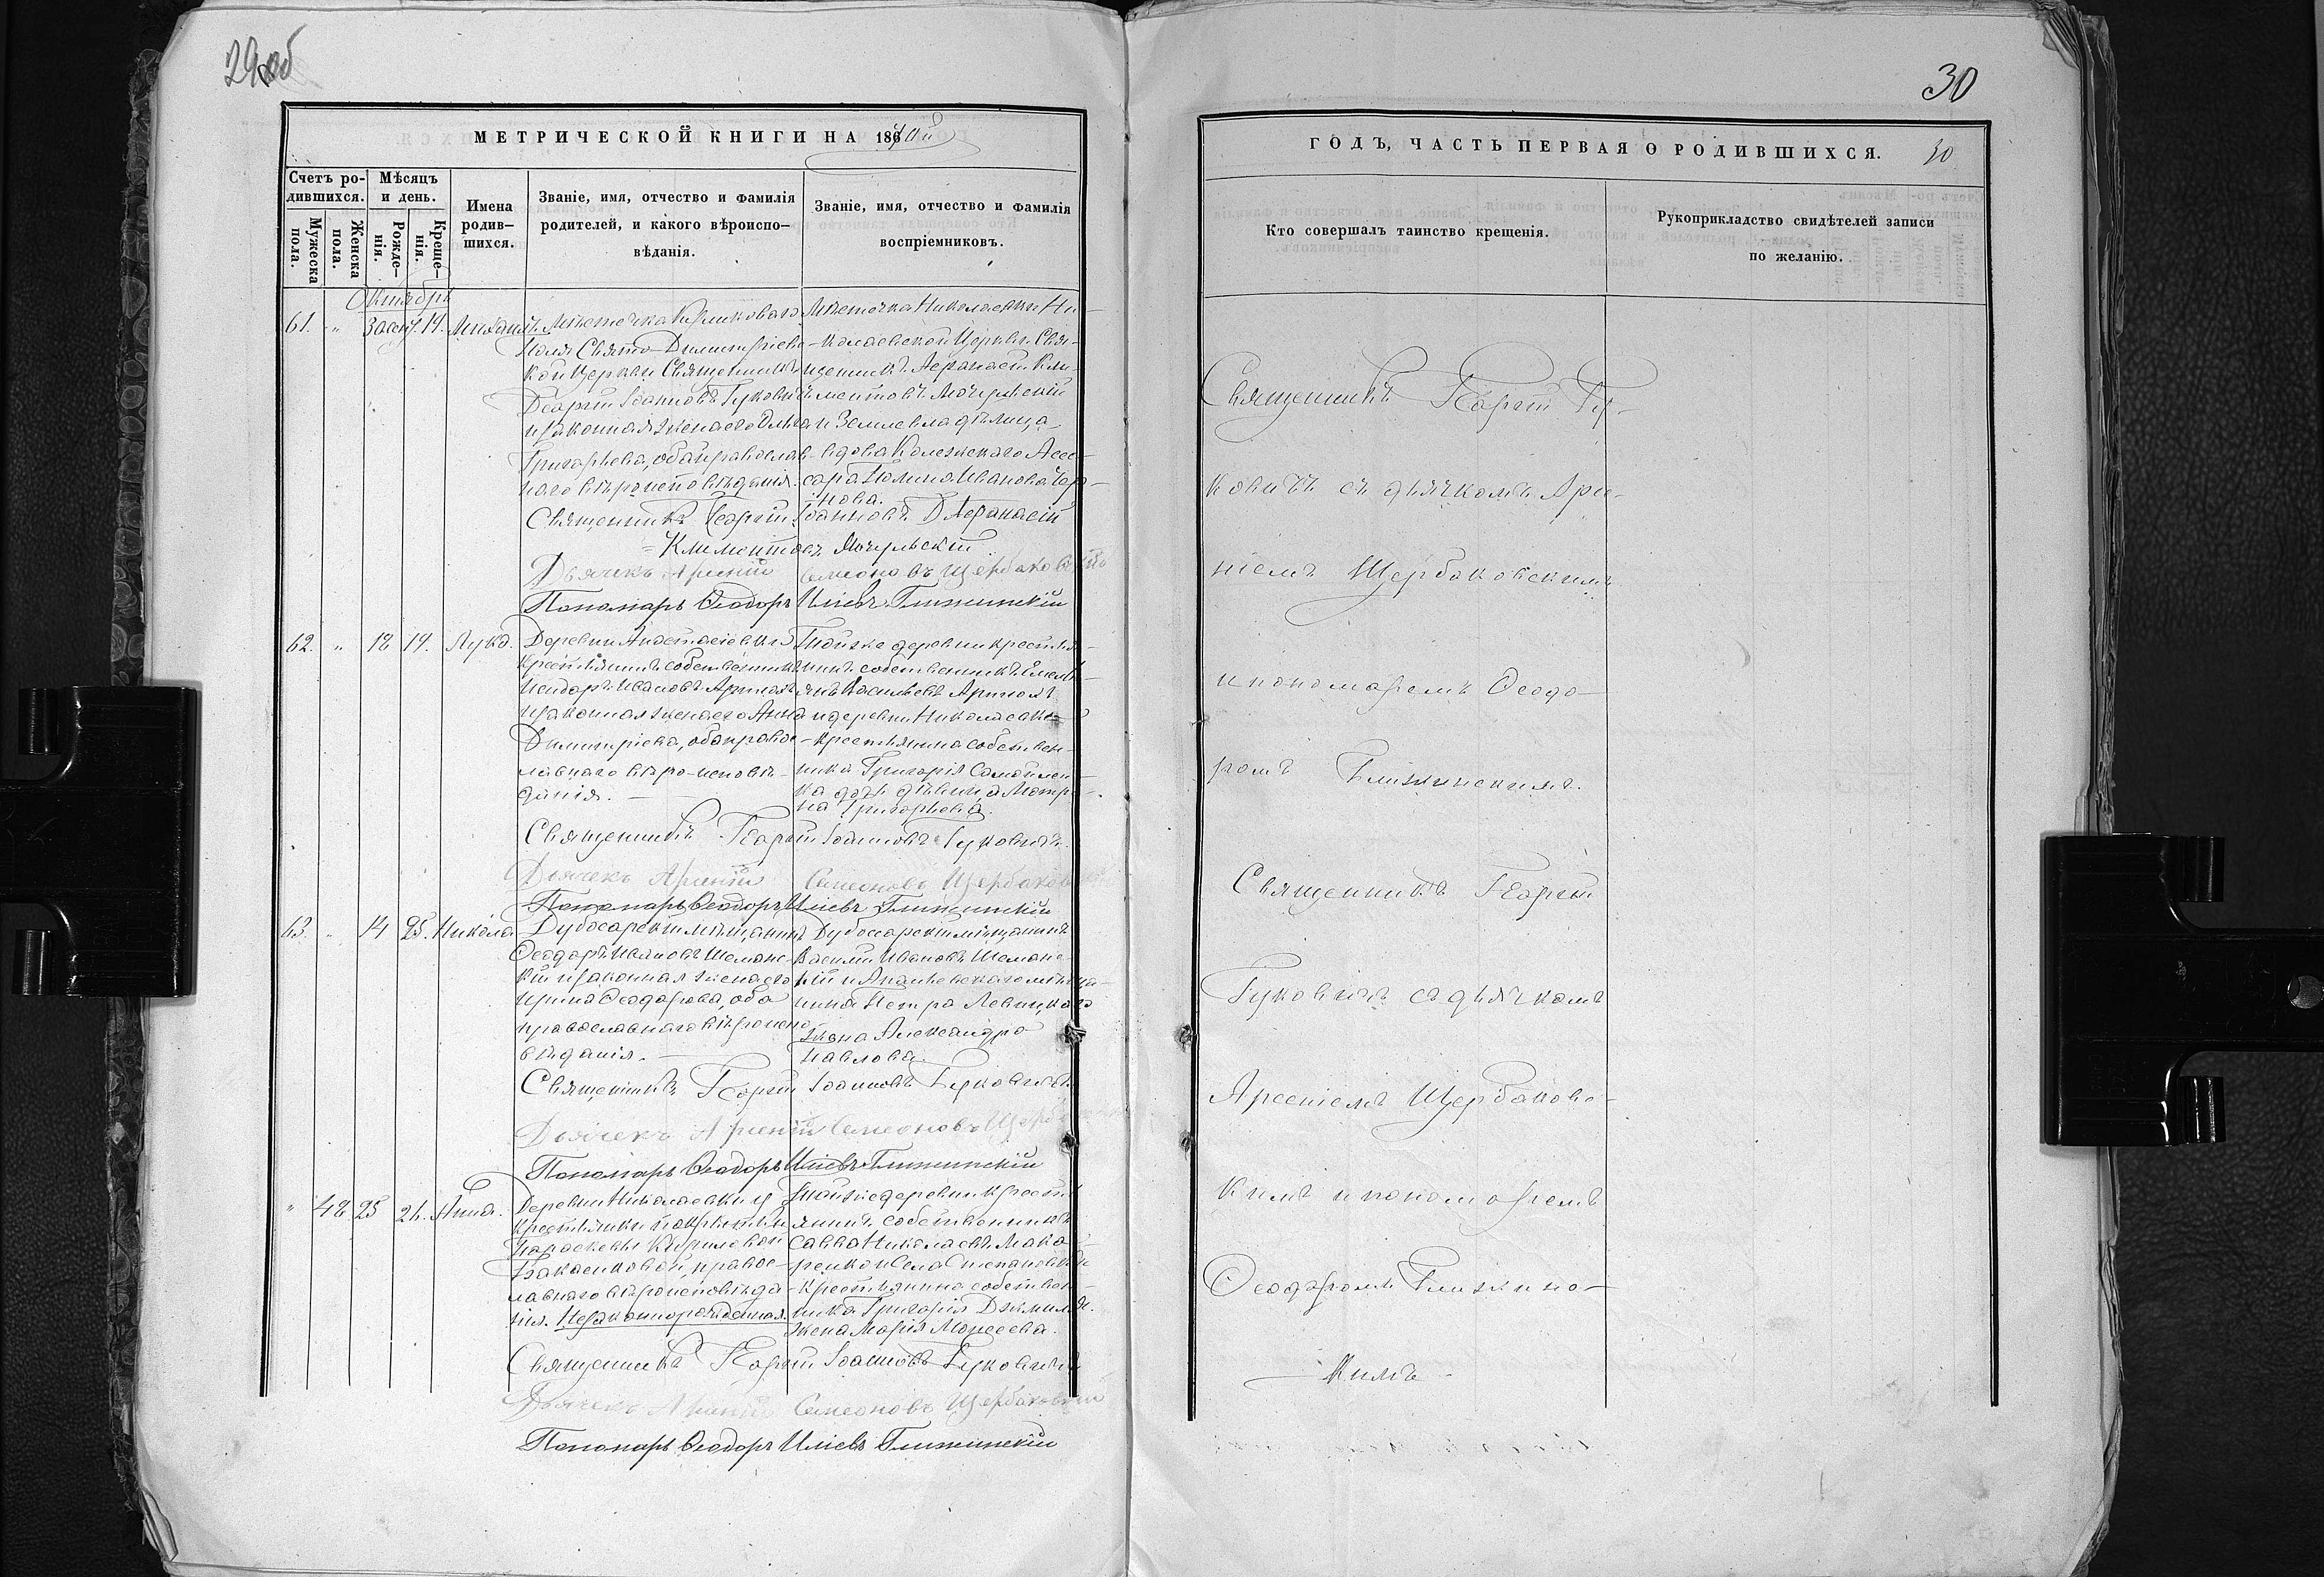 29 об
МЕТРИЧЕСКОЙ КНИГИ НА 1870й
Счетъ ро-
дившихся.
Мужеска
пола.
Женска
пола.
Мѣсяцъ
и день.
Рожде-
нія.
Креще-
нія.
Имена
родив-
шихся.
Званіе, имя, отчество и фамилія
родителей, и какого вѣроиспо-
вѣданія.
Званіе, имя, отчество и фамилія
воспріемниковъ.
Октябрь
61. " 30 сент. 14. Михаилъ
Мѣстечка
поля Свято-Димитріевс-
кой церкви Священникъ
Георгій Іоанновъ Гуковичъ
и законная жена его Ольга
Григорьева, оба православ-
наго вѣроисповѣданія.
Мѣстечка Николаевки Ни-
колаевской Церкви Свя-
щенникъ Афанасій Кли-
ментовъ Мочульскій
и Землевладѣлица
вдова Колежскаго Ассе-
сора Иванова
нова.
Священникъ Георгій Іоанновъ Г Афанасій
Климентовъ Мочульскій
Дьячекъ Арсеній Симеоновъ Щербаковскій
Пономарь Ѳеодоръ Иліевъ Глижинскій
62. " 12 14. Лука.
Деревни Анастасіевки
Крестьянинъ собственникъ
Исидоръ Ивановъ
и законная жена его Анна
Димитріева, оба право-
славнаго вѣроисповѣ-
данія.
Той же деревни крестья-
нинъ собственникъ Емель-
янъ Васильевъ
и деревни Николаевки
крестьянина собствен-
ника Григорія Самойлен-
ка дочь дѣвица Мотро-
на Григорьева.
Священникъ Георгій Іоанновъ Гуковичъ.
Дьячекъ Арсеній Симеоновъ Щербаковскій
Пономарь Ѳеодоръ Иліевъ Глижинскій
63. " 14 25. Никола
Дубосарскій мѣщанинъ
Ѳеодоръ Ивановъ Шеманс-
кій и законная жена его
Ирина Ѳеодорова, оба
православнаго вѣроиспо-
вѣданія.
Дубоссарскій мѣщанинъ
Василій Ивановъ Шеманс-
кій и Ананьевскаго мѣща-
нина Петра Левицкаго
жена Александра
Павлова.
Священникъ Георгій Іоанновъ Гуковичъ.
Дьячекъ Арсеній Симеоновъ Щербаковскій
Пономарь Ѳеодоръ Иліевъ Глижинскій
" 42 25 26. Анна.
Деревни Николаевки у
Крестьянки покрытки
Параскевы Кириловой
Бакаенковой, правос-
лавнаго вѣроисповѣда-
нія. Незаконнорожденная.
Той же деревни крестья-
янинъ собственникъ
Савва Николаевъ Мака-
ренко и села Степановки
Крестьянина собствен-
ника Григорія
жена Марія Моисеева.
Священникъ Георгій Іоанновъ Гуковичъ
Дьячекъ Арсеній Симеоновъ Щербаковскій
Пономарь Ѳеодоръ Иліевъ Глижинскій
30
ГОДЪ, ЧАСТЬ ПЕРВАЯ О РОДИВШИХСЯ. 30
Кто совершалъ таинство крещенія.
Рукоприкладство свидѣтелей записи
по желанію.
Священникъ Георгій Гу-
ковичъ съ дьячкомъ Арсе-
ніемъ Щербаковскимъ
и пономаремъ Ѳеодо-
ромъ Глижинскимъ.
Священникъ Георгій
Гуковичъ съ дьячкомъ
Арсеніемъ Щербаковс-
кимъ и пономаремъ
Ѳеодоромъ Глижинс-
кимъ.